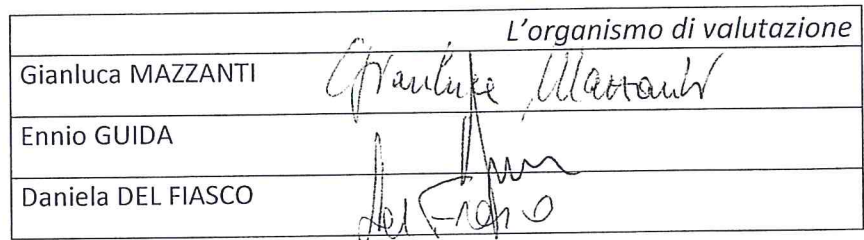 L'organismo di valutazione
Gianluca MAZZANTI Gianluca Mazzanti
Ennio GUIDA
Daniela DEL FIASCO